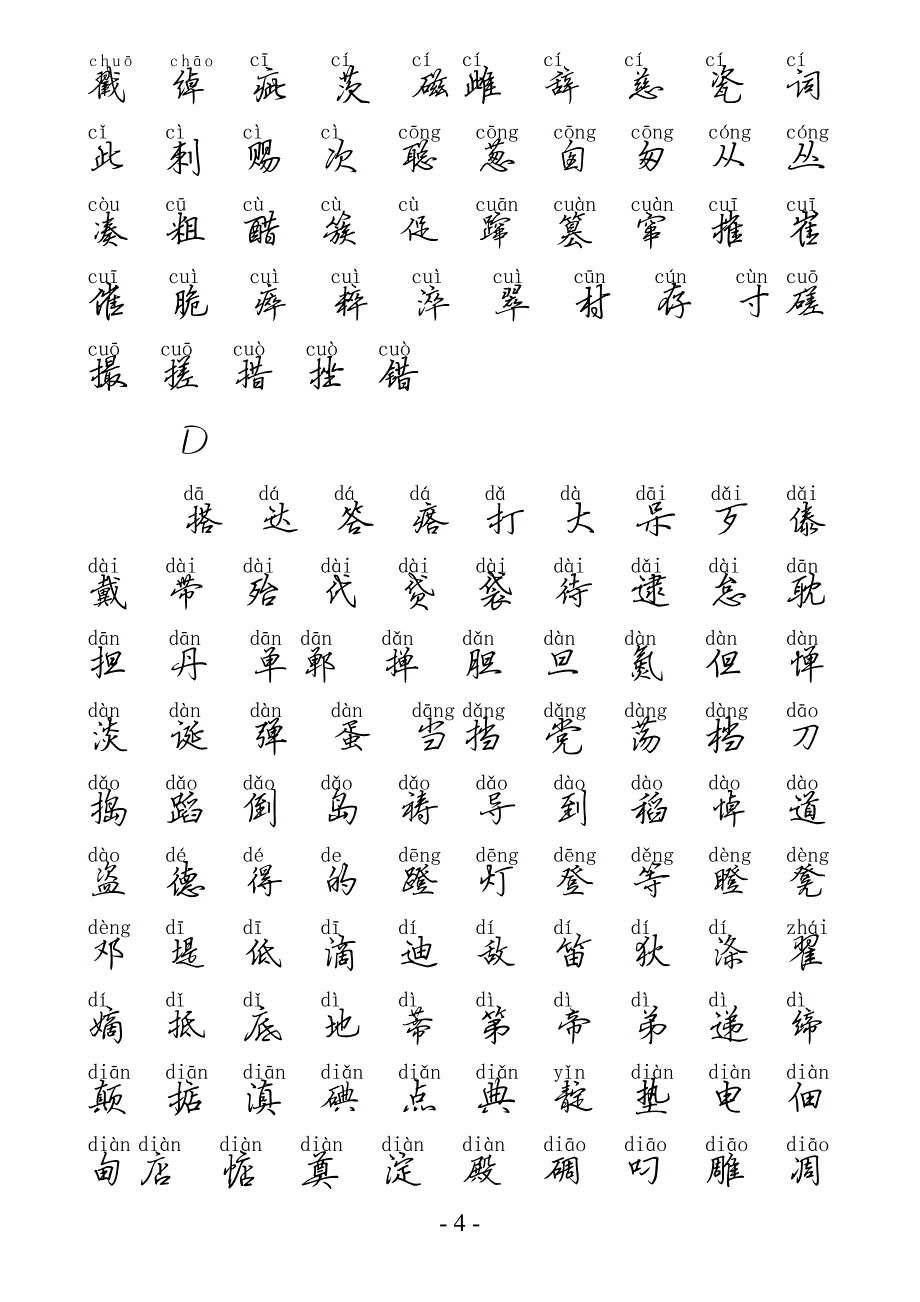 chuō chāo cī cí cí cí cí cí cí cí
戳 绰 疵 茨 磁 雌 辞 慈 瓷 词
cǐ cì cì cì cōng cōng cōng cōng cóng cóng
此 刺 赐 次 聪 葱 囱 匆 从 丛
còu cū cù cù cù cuān cuàn cuàn cuī cuī
凑 粗 醋 簇 促 蹿 篡 窜 摧 崔
cuī cuì cuì cuì cuì cuì cūn cún cùn cuō
催 脆 瘁 粹 淬 翠 村 存 寸 磋
cuō cuō cuò cuò cuò
撮 搓 措 挫 错
D
dā dá dá dá dǎ dà dāi dǎi dǎi
搭 达 答 瘩 打 大 呆 歹 傣
dài dài dài dài dài dài dài dǎi dài dān
戴 带 殆 代 贷 袋 待 逮 怠 耽
dān dān dān dān dǎn dǎn dàn dàn dàn dàn
担 丹 单 郸 掸 胆 旦 氮 但 惮
dàn dàn dàn dàn dāng dǎng dǎng dàng dàng dāo
淡 诞 弹 蛋 当 挡 党 荡 档 刀
dǎo dǎo dǎo dǎo dǎo dǎo dào dào dào dào
捣 蹈 倒 岛 祷 导 到 稻 悼 道
dào dé dé de dēng dēng dēng děng dèng dèng
盗 德 得 的 蹬 灯 登 等 瞪 凳
dèng dī dī dī dí dí dí dí dí zhái
邓 堤 低 滴 迪 敌 笛 狄 涤 翟
dí dǐ dǐ dì dì dì dì dì dì dì
嫡 抵 底 地 蒂 第 帝 弟 递 缔
diān diān diān diǎn diǎn diǎn yǐn diàn diàn diàn
颠 掂 滇 碘 点 典 靛 垫 电 佃
diàn diàn diàn diàn diàn diàn diāo diāo diāo diāo
甸 店 惦 奠 淀 殿 碉 叼 雕 凋
- 4 -